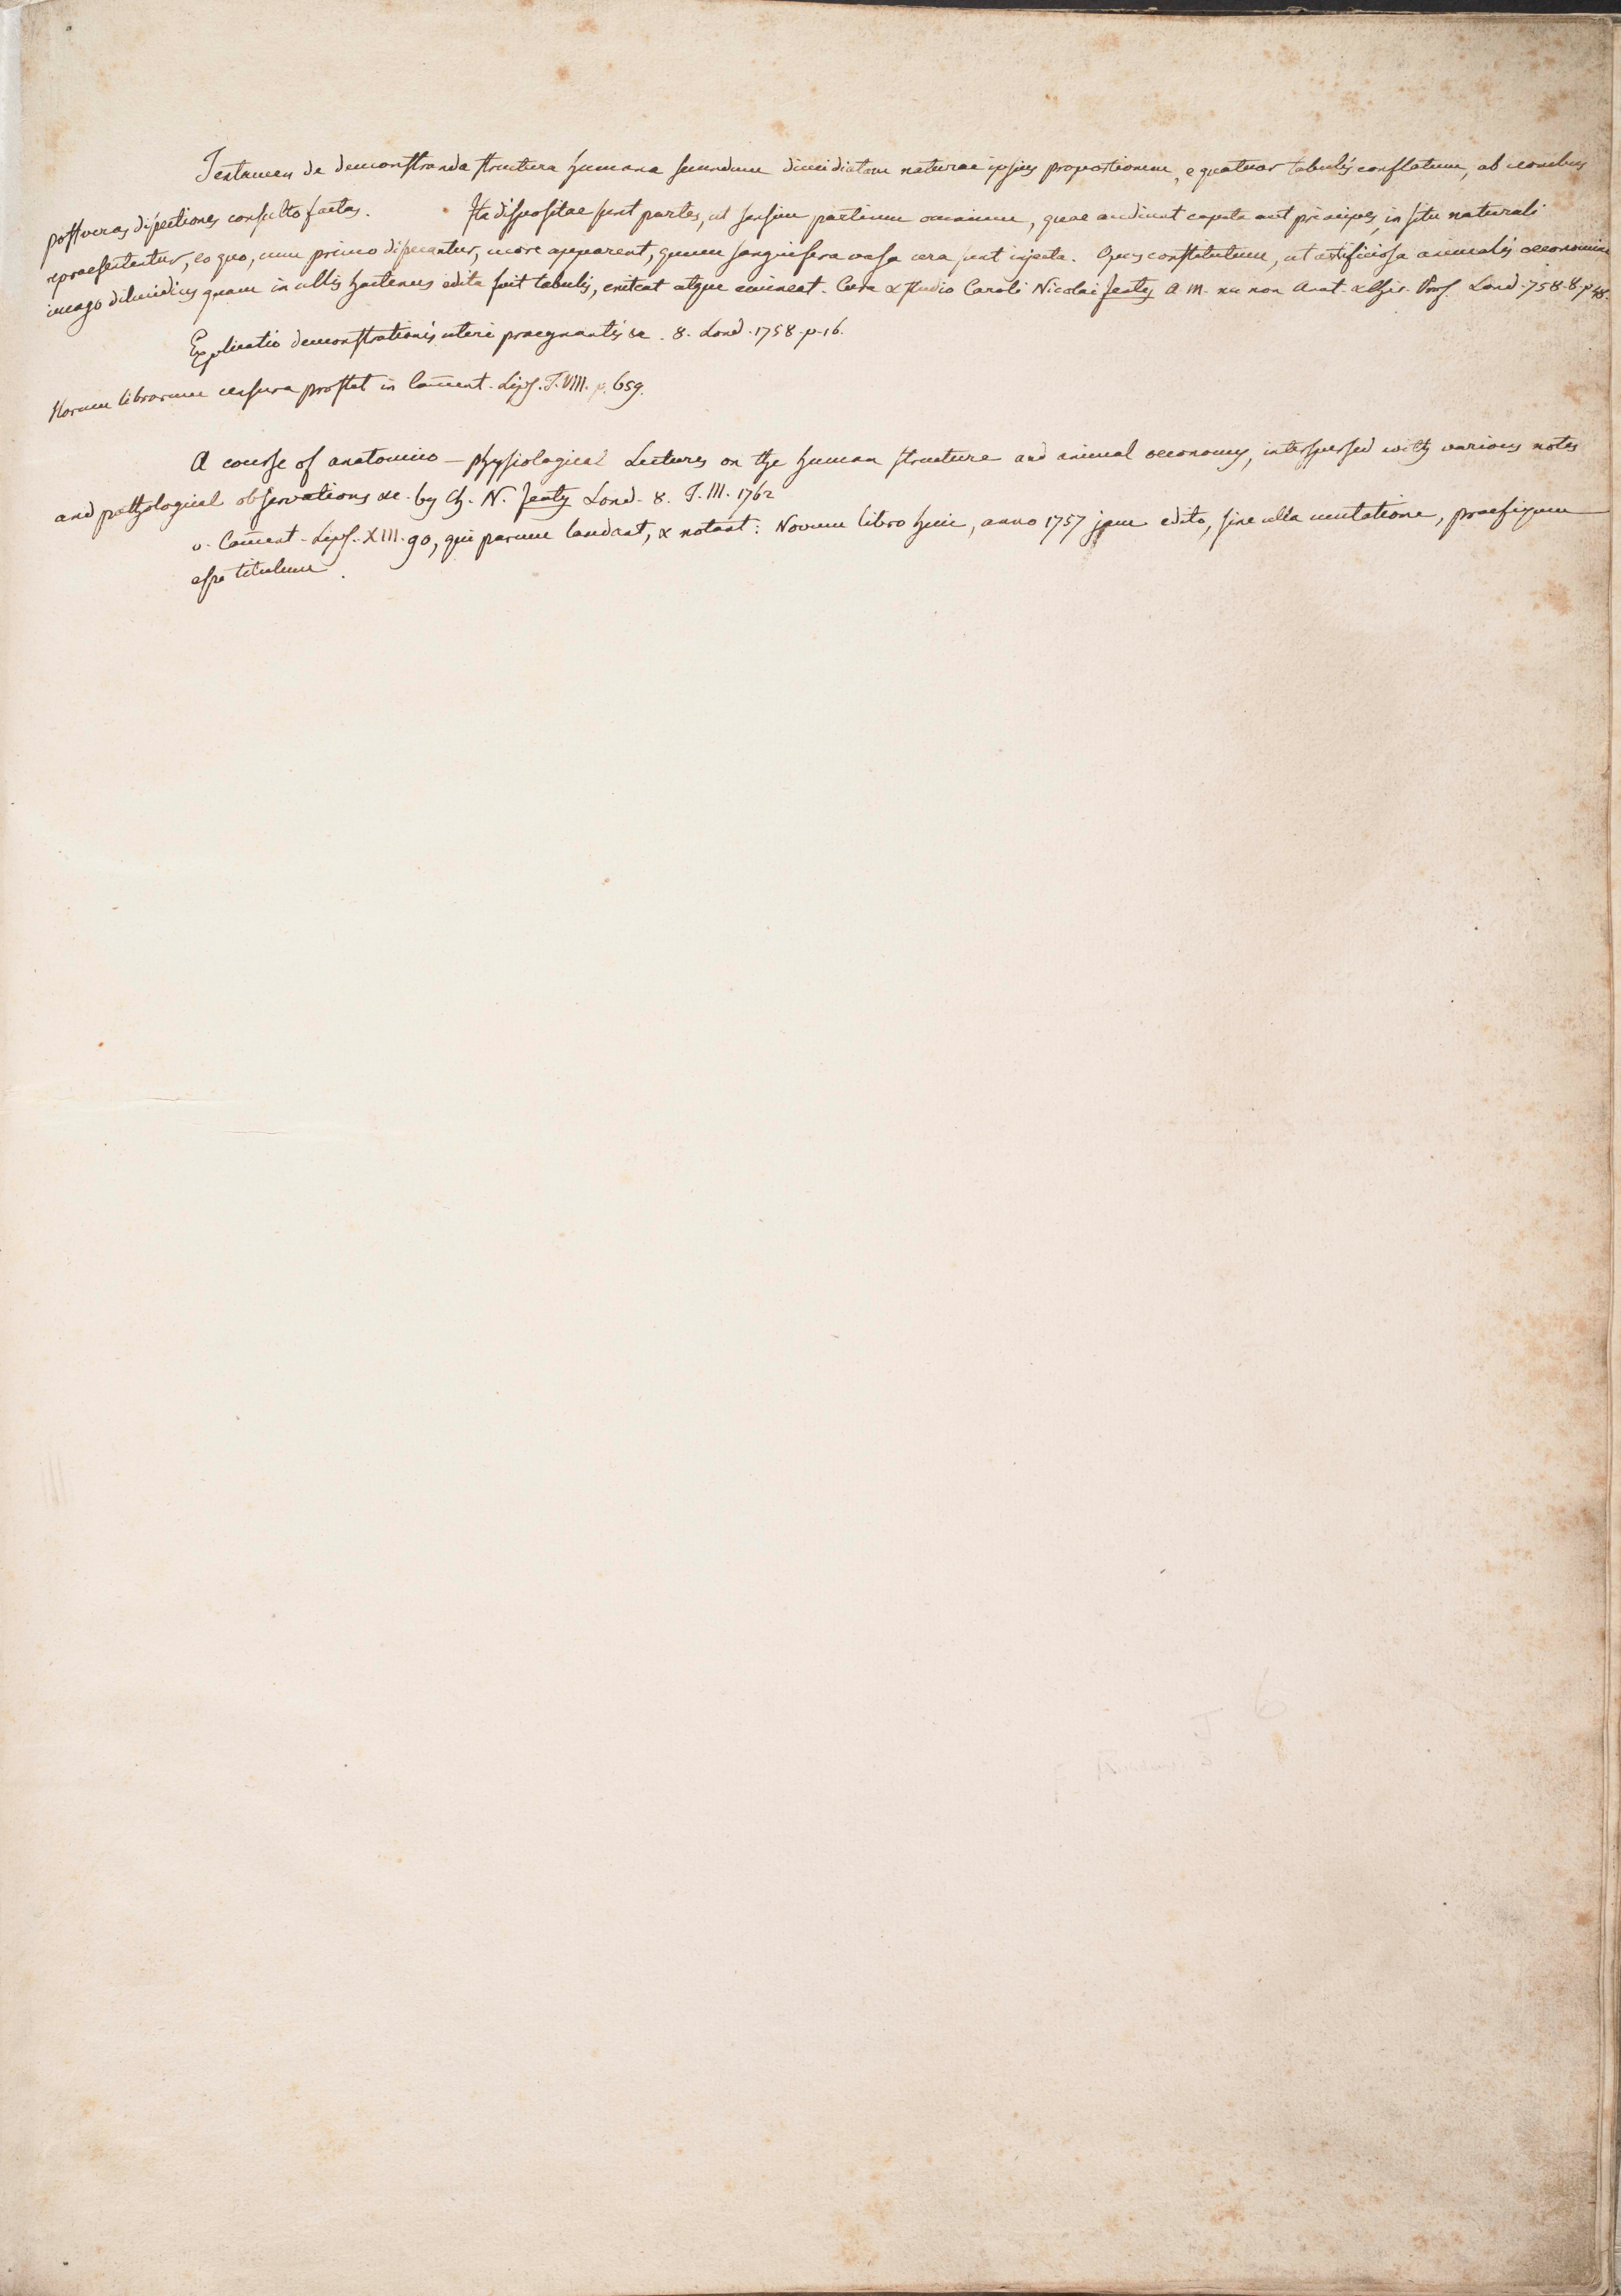 Tentamen de demonstranda structura humana secundum dimidiatam naturae ipsius proportionem, e quatuor tabulis conflatum, ab iconibus
post veras dissectiones consulto factas. Ita dispositae sunt partes, ut sensim partium omnium, quae audiunt capita aut principes, in situ naturali
repraesententur, eo quo, cum primo dissecantur, more apparent, quum sanguifera vasa cera sunt injecta. Opus constitutum, ut artificiosa animalis oeconomiae
imago dilucidius quam in ullis hactenus edita fuit tabulis, eniteat atque emineat. Cura & studio Caroli Nicolai Jenty A. M. nec non Anat. & Chir. Prof. Lond. 758. 8. p. 48.
Explicatio demonstrationis uteri praegnantis &c. 8. Lond. 1758. p. 16.
Horum librorum censura prostat in Com̄ent. Lips. T. VIII. p. 659.
A course of anatomico-physiological Lectures on the human structure and animal oeconomy, interspersed with various notes
and pathological observations &c. by Ch. N. Jenty Lond. 8. T. III. 1762
v. Com̄ent. Lips. XIII. 90, qui parum laudant, & notant: Novum libro huic, anno 1757 jam edito, sine ulla mutatione, praefixum
esse titulum.